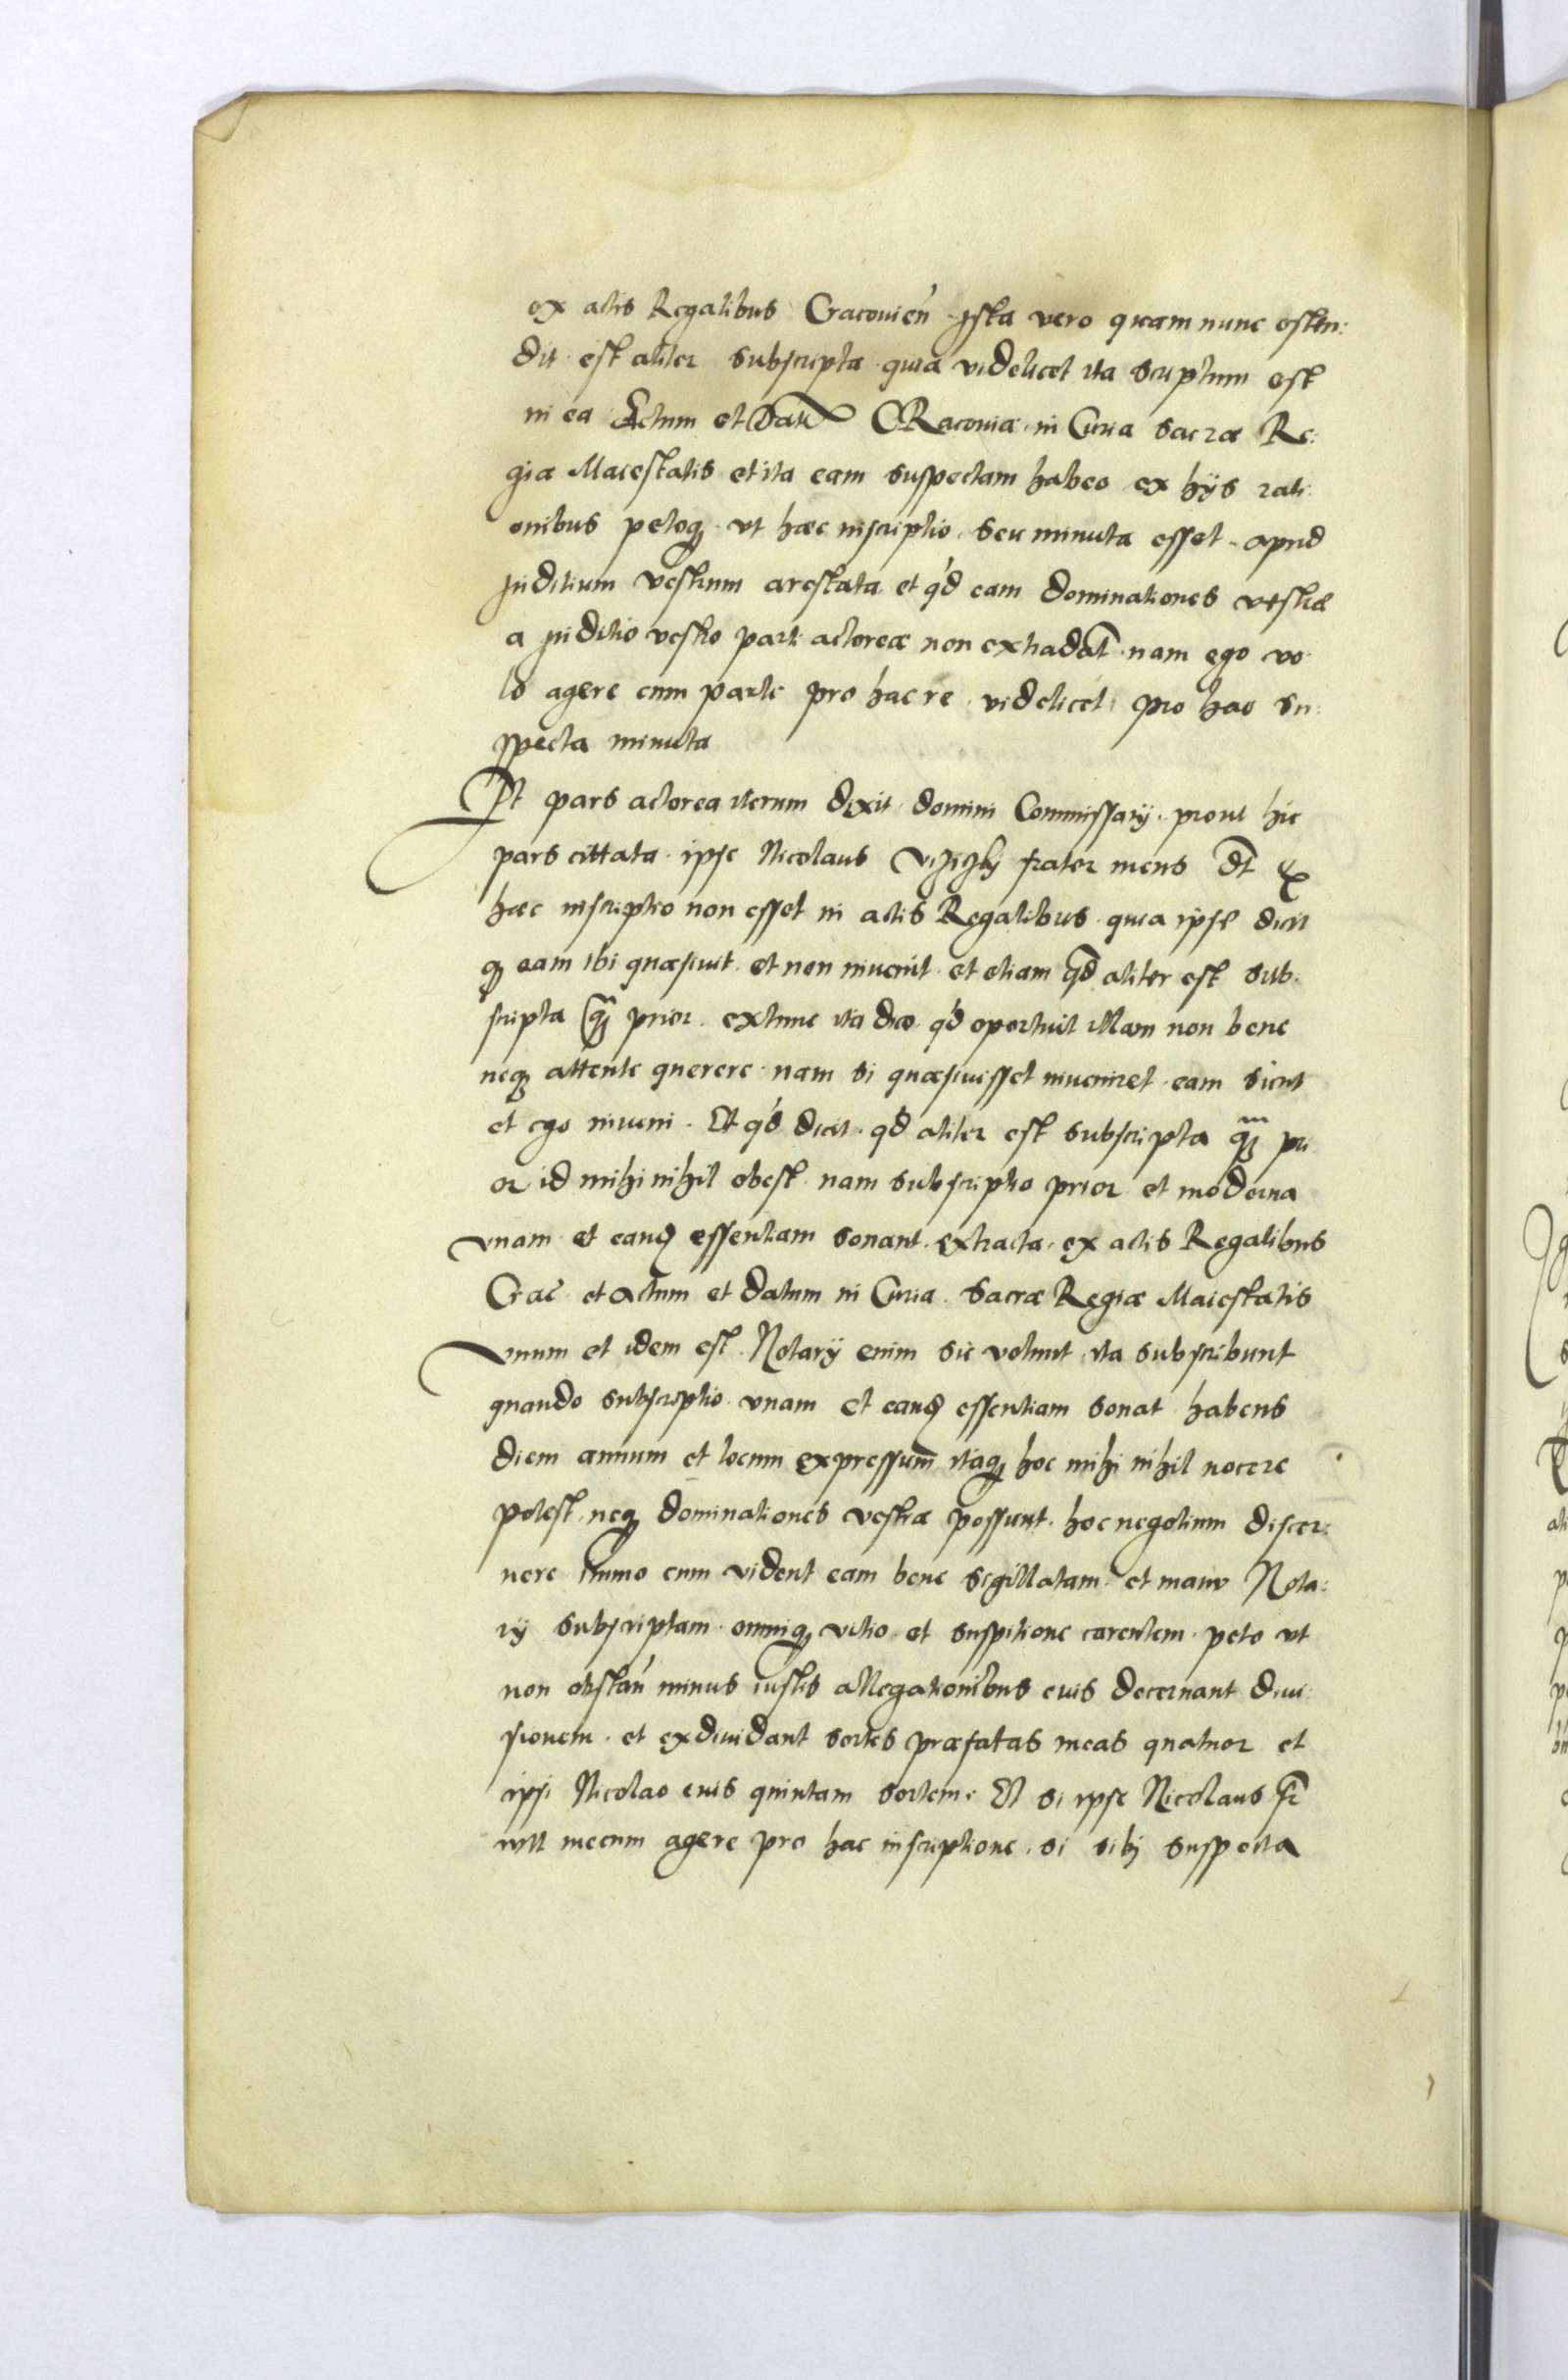 ex actis Regalibus Cracovień. Ista vero quam nunc osten:
dit est aliter subscripta quia videlicet ita scriptum est
in ea Actum et Datū CRacoviæ in Curia Sacræ Re:
giæ Maiestatis et ita eam suspectam habeo ex hÿs rati
onibus petoq; vt hæc inscriptio seu minuta esset apud
Juditium vestrum arestata et q'd eam dominationes vestræ
a juditio vestro parti actoreæ non extradāt nam ego vo
lo agere cum parte pro hac re videlicet pro hac su
specta minuta
Et pars actorea iterum dixit domini Commissarÿ prout hic
pars cittata ipse Nicolaus frater meus dt̄ q;
hæc inscriptio non esset in actis Regalibus quia ipse dicit
q; eam ibi quæsivit et non invenit et etiam qd̄ aliter est sub
scripta q̄; prior extunc ita dico q'd oportuit illam non bene
neq; attente querere nam si quæsivisset inveniret eam sicut
et ego inveni. Et q'd dicit q'd aliter est subscripta q̄; pri
or id mihi nihil obest nam subscriptio prior et moderna
vnam et eand; essentiam sonant extracta ex actis Regalibus
Crac̄ et Actum et datum in Curia Sacræ Regiæ Maiestatis
vnum et idem est Notarÿ enim sic volunt ita subscribunt
quando subscriptio vnam et eand; essentiam sonat habens
diem annum et locum expressum̄ itaq; hoc mihi nihil nocere
potest neq; dominationes vestræ possunt hoc negotium discer:
nere immo cum vident eam bene sigillatam et manu Nota:
rÿ subscriptam omniq; vitio et suspitione carentem peto vt
non obstań minus iustis allegationibus eius decernant divi
sionem et exdividant sortes præfatas meas quatuor et
ipsi Nicolao eius quintam sortem. Et si ipse Nicolaus fr̄
vult mecum agere pro hac inscriptione si sibj suspecta